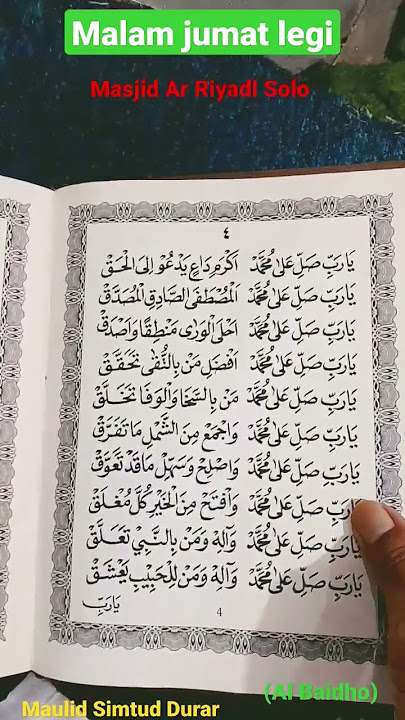 Malam jumat legi
Masjid Ar Riyadl Solo
٤
يَارَبِّ صَلِّ عَلٰى مُحَمَّدْ اَكْرَمِ دَاعٍ يَدْعُوْ اِلَى الْحَقْ
يَارَبِّ صَلِّ عَلٰى مُحَمَّدْ اَلْمُصْطَفَى الصَّادِقِ الْمُصَدَّقْ
يَارَبِّ صَلِّ عَلٰى مُحَمَّدْ اَحْلَى الْوَرٰى مَنْطِقًا وَاَصْدَقْ
يَارَبِّ صَلِّ عَلٰى مُحَمَّدْ اَفْضَلِ مَنْ بِالتُّقٰى تَحَقَّقْ
يَارَبِّ صَلِّ عَلٰى مُحَمَّدْ مَنْ بِالسَّخَا وَالْوَفَا تَخَلَّقْ
يَارَبِّ صَلِّ عَلٰى مُحَمَّدْ وَاجْمَعْ مِنَ الشَّمْلِ مَا تَفَرَّقْ
يَارَبِّ صَلِّ عَلٰى مُحَمَّدْ وَاصْلِحْ وَسَهِّلْ مَا قَدْ تَعَوَّقْ
يَارَبِّ صَلِّ عَلٰى مُحَمَّدْ وَافْتَحْ مِنَ الْخَيْرِ كُلَّ مُغْلَقْ
يَارَبِّ صَلِّ عَلٰى مُحَمَّدْ وَآلِهْ وَمَنْ بِالنَّبِيْ تَعَلَّقْ
يَارَبِّ صَلِّ عَلٰى مُحَمَّدْ وَآلِهْ وَمَنْ لِلْحَبِيْبِ يَعْشَقْ
يَارَبِّ
4
(Al Baidho)
Maulid Simtud Durar